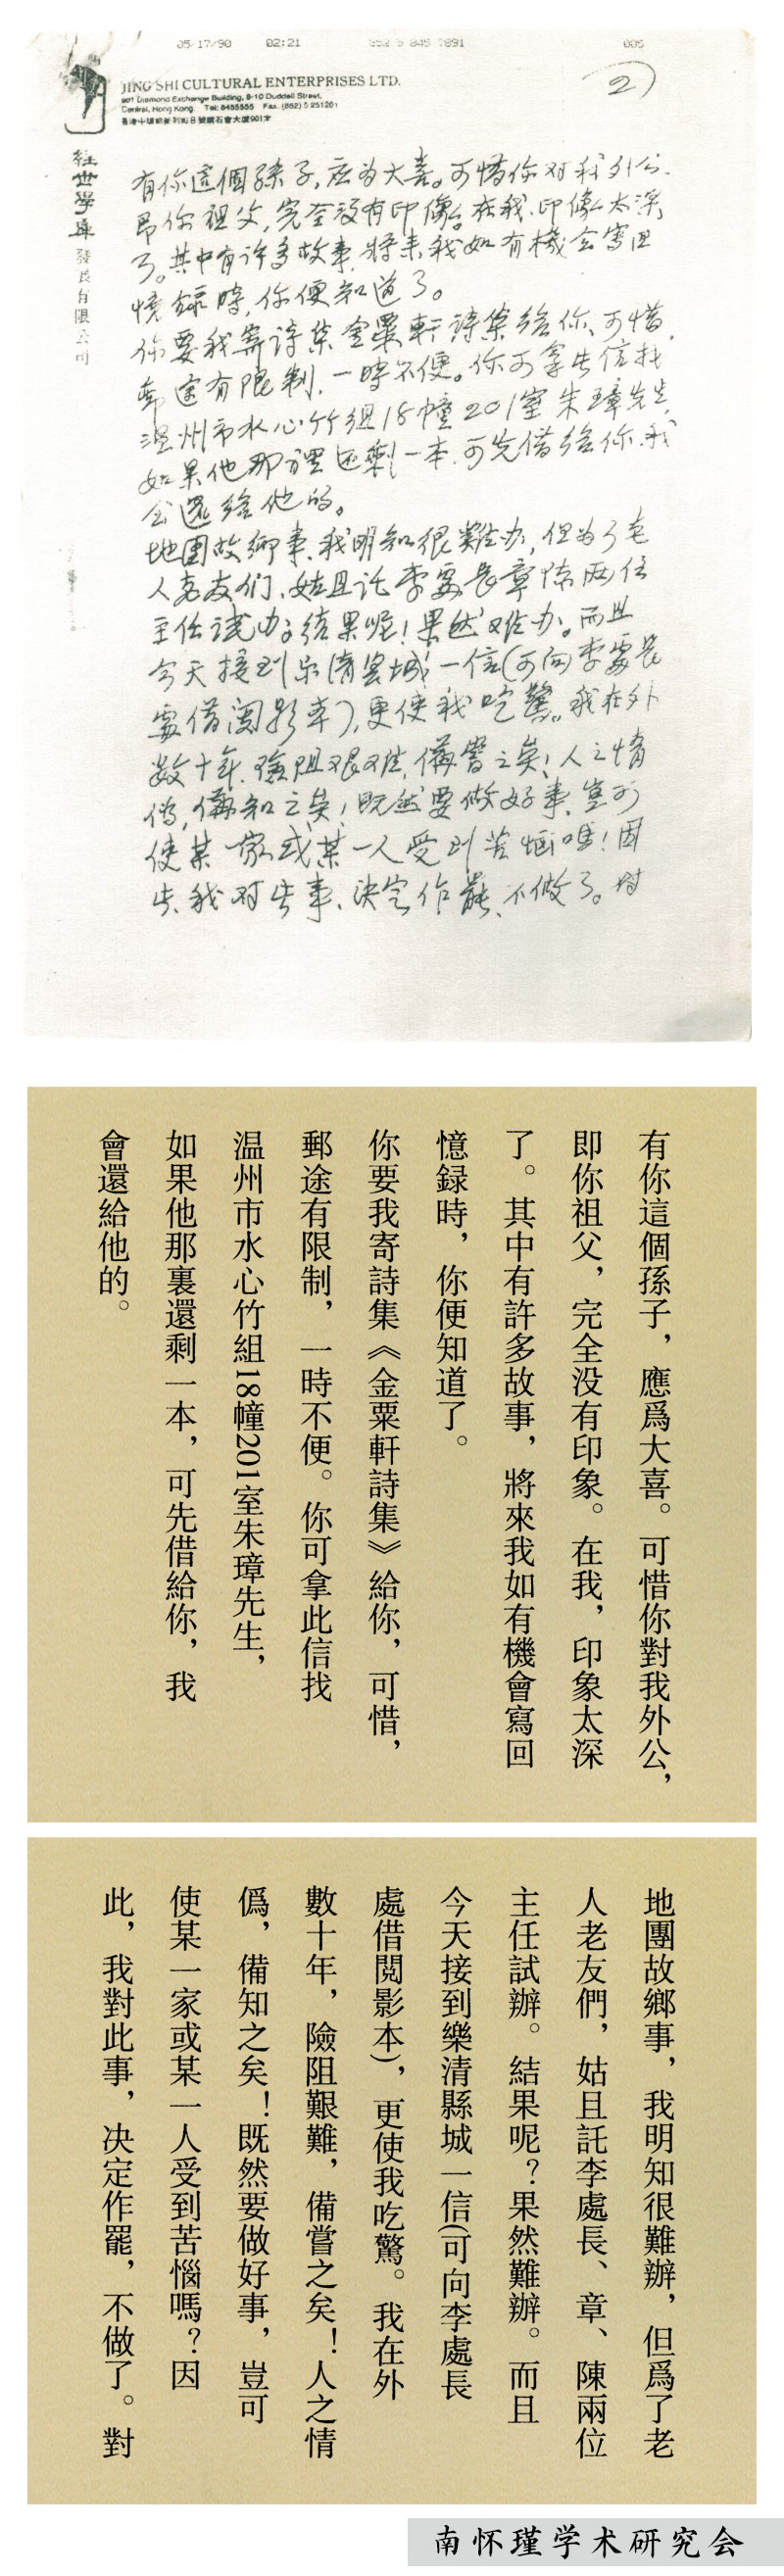 05/17/90 02:21 852 5 845 7891 005
JING SHI CULTURAL ENTERPRISES LTD.
901 Diamond Exchange Building, 8-10 Duddell Street,
Central, Hong Kong. Tel: 8455555 Fax. (852) 5 251201
香港中環都爹利街8號鑽石會大廈901室
2
經世學庫發展有限公司
有你這個孫子,应为大喜。可惜你对我外公.
即你祖父,完全没有印像。在我.印像太深
了。其中有许多故事.將来我如有機会写回
憶録時,你便知道了。
你要我寄詩集金粟軒詩集給你、可惜,
郵途有限制.一時不便。你可拿此信找
温州市水心竹组18幢201室朱璋先生,
如果他那裡还剩一本.可先借给你.我
会還给他的。
地團故鄉事、我明知很難办,但为了老
人老友们、姑且託李處長章陈两位
主任試办。结果呢!果然难办。而且
今天接到乐清县城一信(可向李處長
處借閱影本),更使我吃驚。我在外
数十年.險阻艰难,備嘗之矣!人之情
偽,備知之矣!既然要做好事、岂可
使某一家或某一人受到苦恼嗎!因
此.我对此事、决定作罷、不做了。对
有你這個孫子，應爲大喜。可惜你對我外公，
即你祖父，完全没有印象。在我，印象太深
了。其中有許多故事，將來我如有機會寫回
憶録時，你便知道了。
你要我寄詩集《金粟軒詩集》給你，可惜，
郵途有限制，一時不便。你可拿此信找
温州市水心竹組18幢201室朱璋先生，
如果他那裏還剩一本，可先借給你，我
會還給他的。
地團故鄉事，我明知很難辦，但爲了老
人老友們，姑且託李處長、章、陳兩位
主任試辦。結果呢？果然難辦。而且
今天接到樂清縣城一信(可向李處長
處借閲影本)，更使我吃驚。我在外
數十年，險阻艱難，備嘗之矣！人之情
僞，備知之矣！既然要做好事，豈可
使某一家或某一人受到苦惱嗎？因
此，我對此事，决定作罷，不做了。對
南怀瑾学术研究会